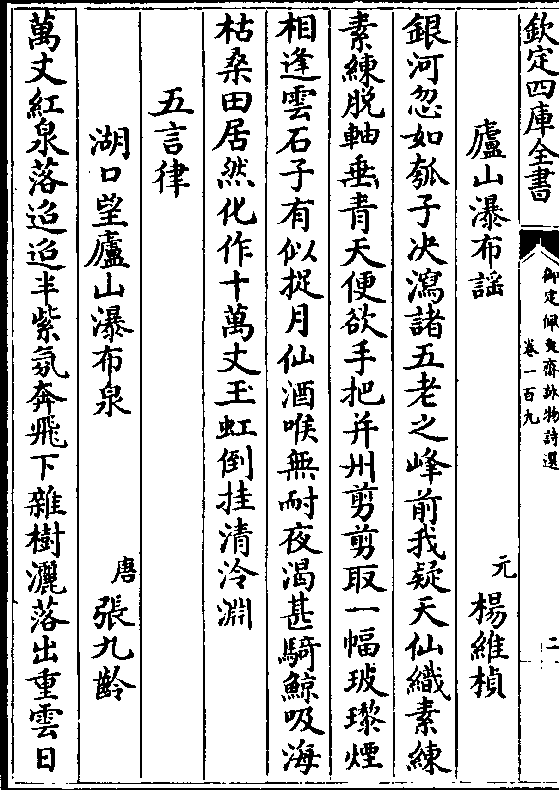 欽定四庫全書
御定佩文齋詠物詩選
卷一百九
二
廬山瀑布謡
元
楊維楨
銀河忽如瓠子决瀉諸五老之峰前我疑天仙織素練
素練脱軸垂青天便欲手把并州剪剪取一幅玻瓈煙
相逢雲石子有似捉月仙酒喉無耐夜渴甚騎鯨吸海
枯桑田居然化作十萬丈玉虹倒挂清泠淵
五言律
湖口望廬山瀑布泉
唐
張九齡
萬丈紅泉落迢迢半紫氛奔飛下雜樹灑落出重雲日